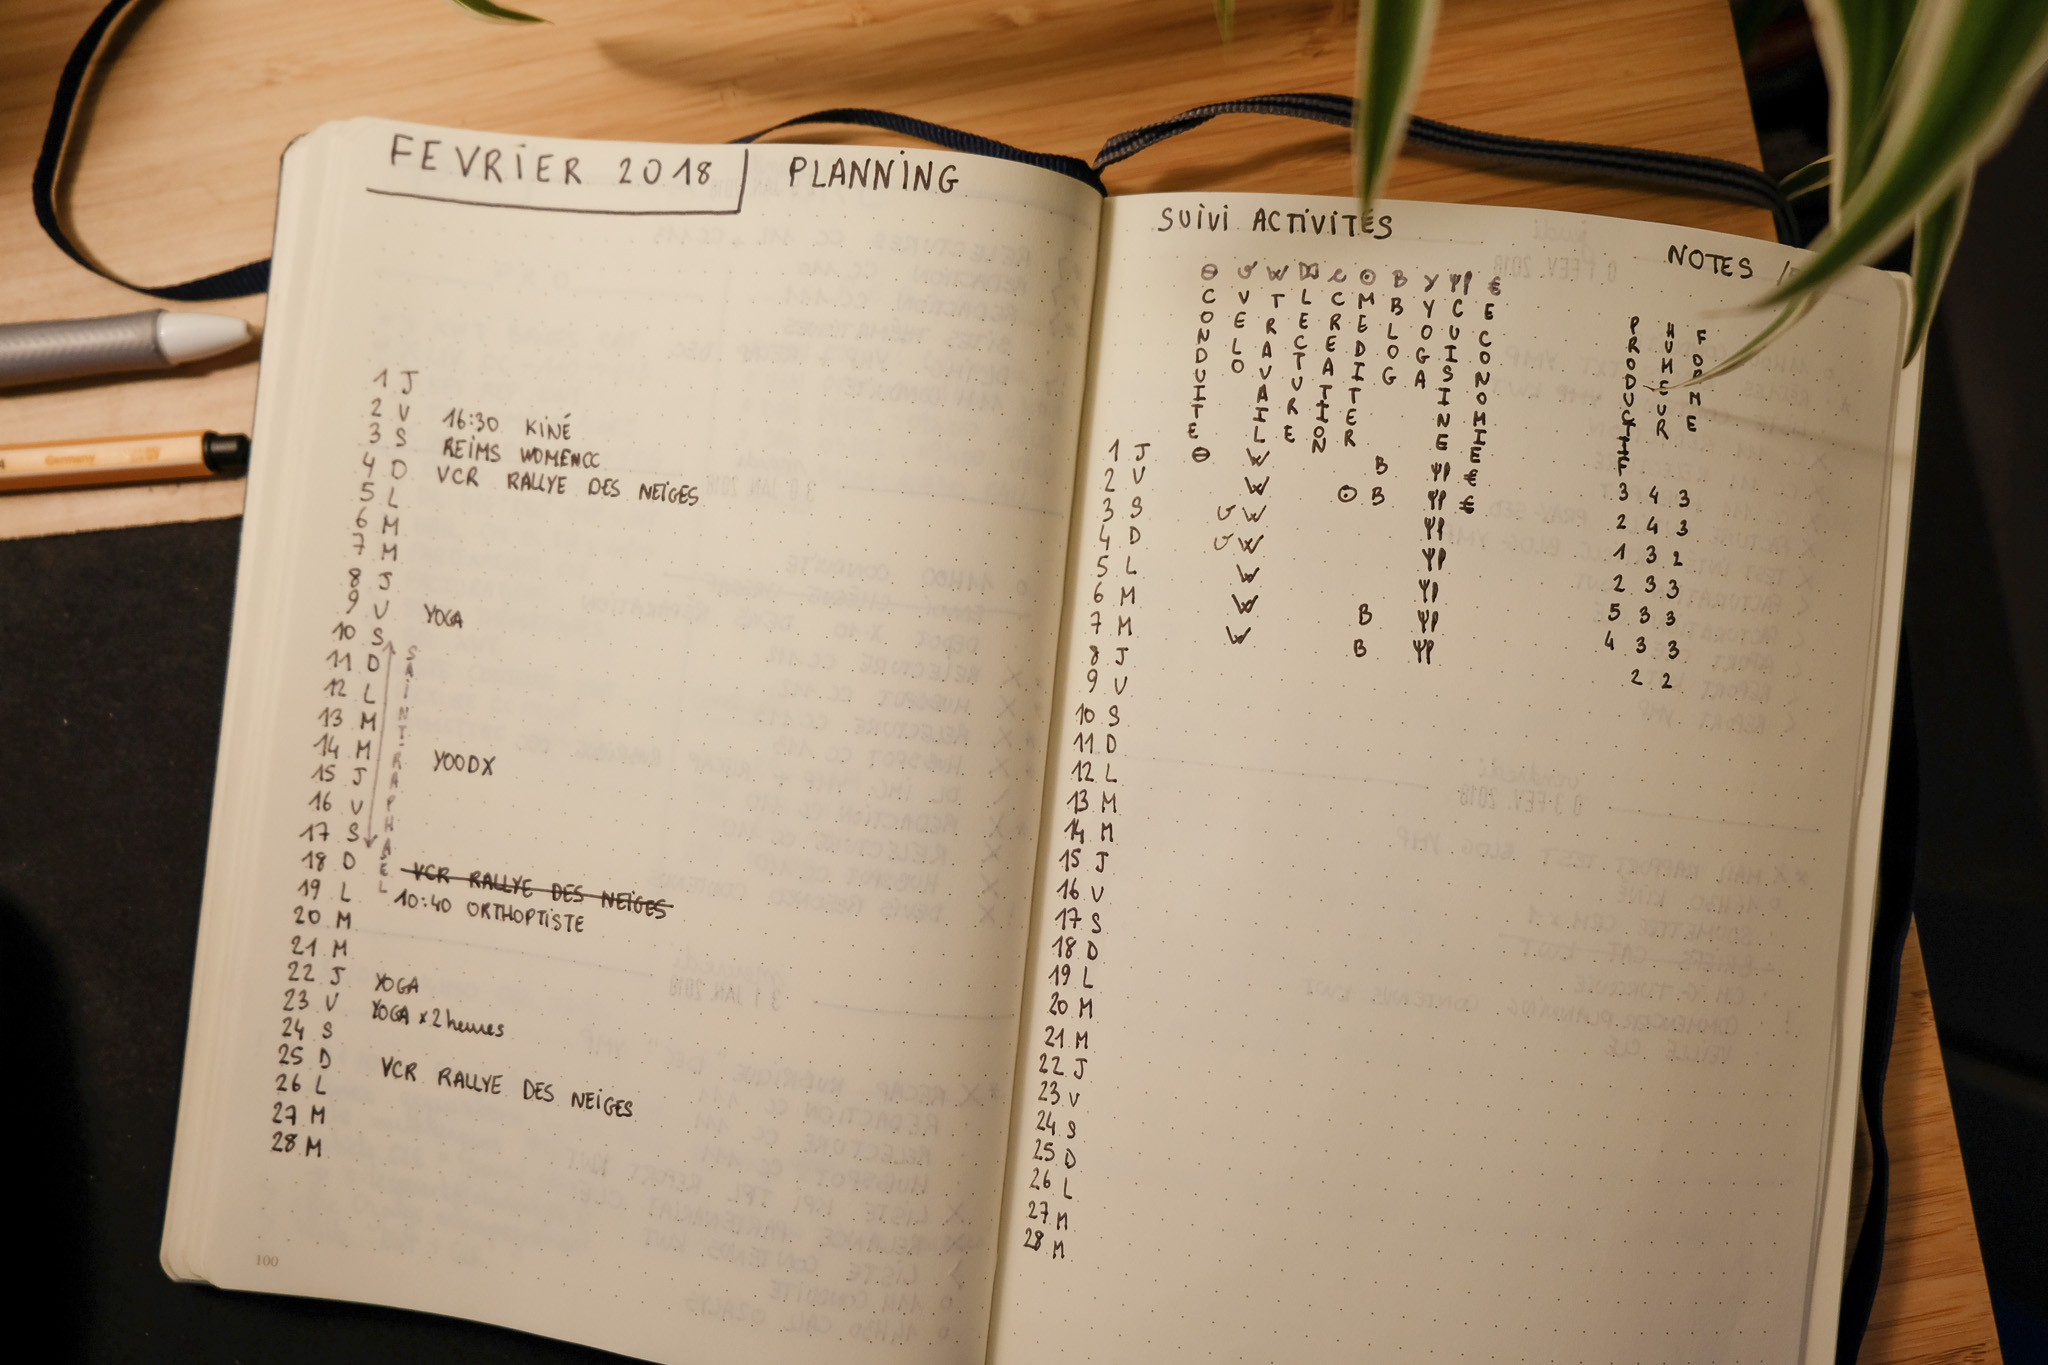 FEVRIER 2018 PLANNING
1 J
2 V 16:30 KINÉ
3 S REIMS WOMENCC
4 D VCR RALLYE DES NEIGES
5 L
6 M
7 M
8 J
9 V YOGA
10 S
11 D
12 L
13 M
14 M YOODX
15 J
16 V
17 S
18 D VCR RALLYE DES NEIGES
19 L 10:40 ORTHOPTISTE
20 M
21 M
22 J YOGA
23 V YOGA x 2 heures
24 S
25 D VCR RALLYE DES NEIGES
26 L
27 M
28 M
SAINT-RAPHAËL
100
SUIVI ACTIVITÉS
NOTES /5
B Y €
CONDUITE
VELO
TRAVAIL
LECTURE
CREATION
MEDITER
BLOG
YOGA
CUISINE
ECONOMIE
PRODUCTIF
HUMEUR
FORME
1 J W B € 3 4 3
2 V W B € 2 4 3
3 S W 1 3 2
4 D W 2 3 3
5 L W 5 3 3
6 M W B 4 3 3
7 M W B 2 2
8 J
9 V
10 S
11 D
12 L
13 M
14 M
15 J
16 V
17 S
18 D
19 L
20 M
21 M
22 J
23 V
24 S
25 D
26 L
27 M
28 M
Germany